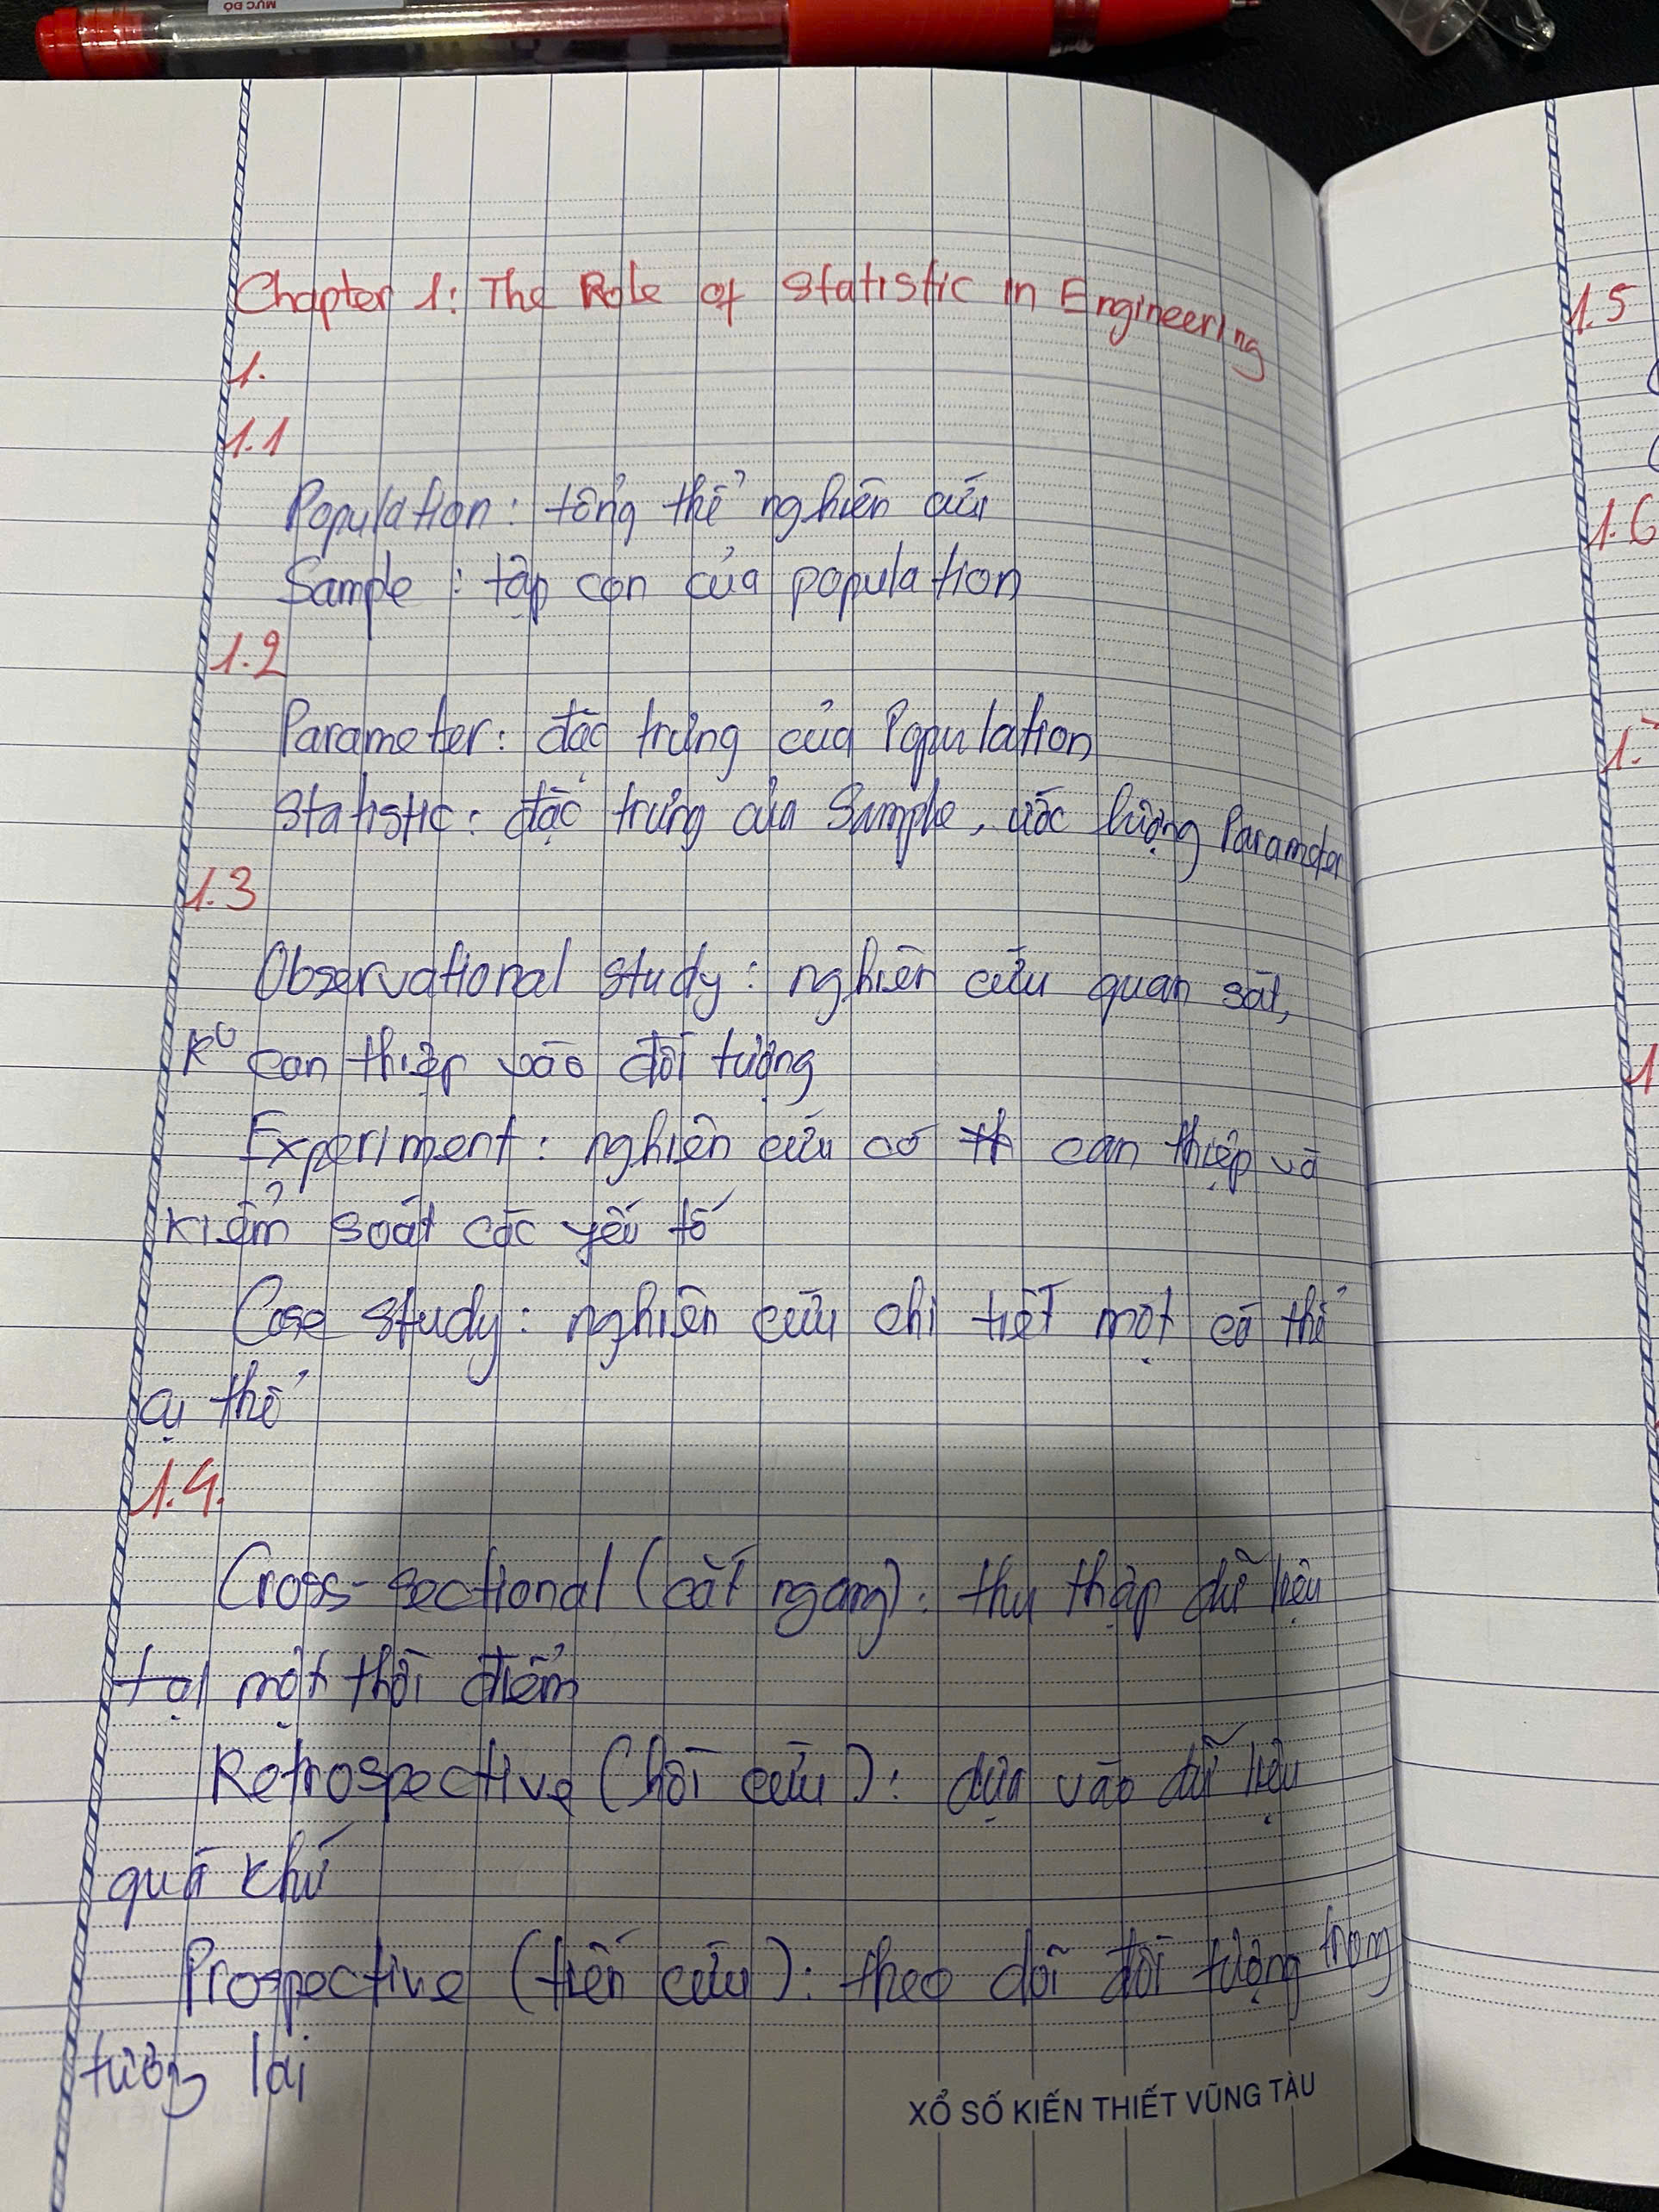 MỨC ĐỘ
Chapter 1: The Role of Statistic in Engineering
1.
1.1
Population: tổng thể nghiên cứu
Sample: tập con của population
1.2
Parameter: đặc trưng của Population
Statistic: đặc trưng của Sample, ước lượng Parameter
1.3
Observational study: nghiên cứu quan sát,
k⁰ can thiệp vào đối tượng
Experiment: nghiên cứu có can thiệp và
kiểm soát các yếu tố
Case study: nghiên cứu chi tiết một cá thể
cụ thể
1.4.
Cross-sectional (cắt ngang): thu thập dữ liệu
tại một thời điểm
Retrospective (hồi cứu): dựa vào dữ liệu
quá khứ
Prospective (tiến cứu): theo dõi đối tượng trong
tương lai
XỔ SỐ KIẾN THIẾT VŨNG TÀU
1.5
1.6